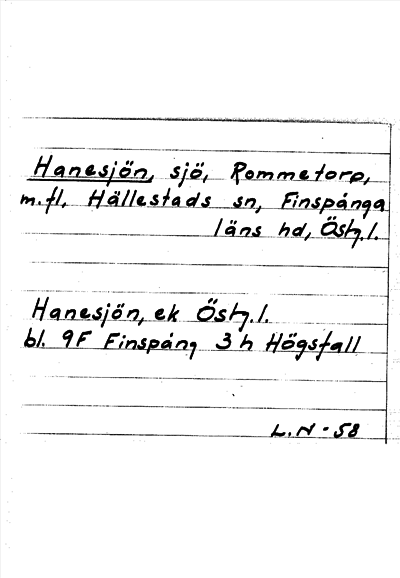 Hanesjön, sjö, Rommetorp,
m.fl. Hällestads sn, Finspånga
läns hd, Östg.l.
Hanesjön, ek Östg.l.
bl. 9F Finspång 3h Högsfall
L.N-58